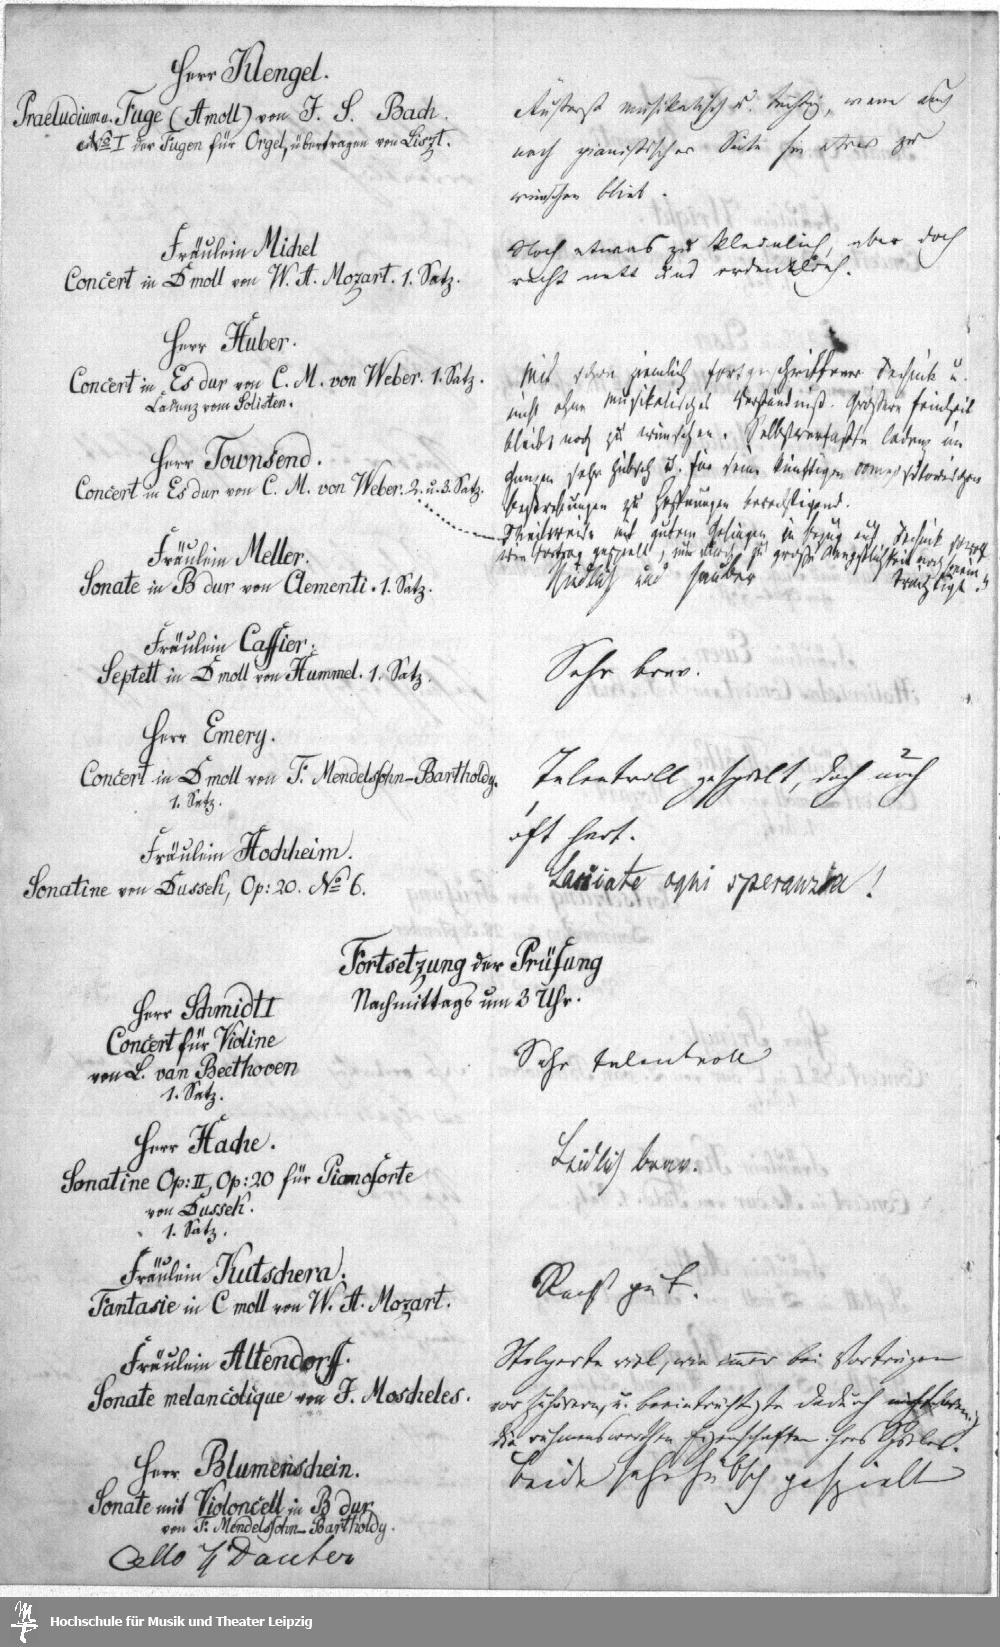 Herr Klengel.
Praeludium u. Fuge (A moll) von J. S. Bach.
No I der Fugen für Orgel, übertragen von Liszt.
Äusserst musikalisch u. tüchtig, wenn auch
nach pianistischer Seite hin etwas zu
wünschen blieb.
Fräulein Michel
Concert in D moll von W. A. Mozart. 1. Satz.
Noch etwas zu kleinlich, aber doch
recht nett und ordentlich.
Herr Huber.
Concert in Es dur von C. M. von Weber. 1. Satz.
Cadenz vom Solisten.
Mit schon ziemlich fortgeschrittener Technik u.
nicht ohne musikalisches Verständniß. Grössere Feinheit
bleibt noch zu wünschen. Selbstverfaßte Cadenz im
Ganzen sehr hübsch u. für seine künftigen compositorischen
Bestrebungen zu Hoffnungen berechtigend.
Herr Townsend.
Concert in Es dur von C. M. von Weber. 2. u. 3. Satz.
Theilweise mit gutem Gelingen in Bezug auf Technik sowohl
wie Vortrag gespielt, nur durch zu große Aengstlichkeit noch beein-
trächtigt.
Fräulein Meller.
Sonate in B dur von Clementi. 1. Satz.
Niedlich und sauber
Fräulein Cassier.
Septett in D moll von Hummel. 1. Satz.
Sehr brav.
Herr Emery.
Concert in D moll von F. Mendelssohn-Bartholdy.
1. Satz.
Talentvoll gespielt, doch auch
oft hart.
Fräulein Hochheim.
Sonatine von Dussek, Op: 20. No 6.
Lasciate ogni speranza!
Fortsetzung der Prüfung
Nachmittags um 3 Uhr.
Herr Schmidt I
Concert für Violine
von L. van Beethoven
1. Satz.
Sehr talentvoll
Herr Hache.
Sonatine Op: II, Op: 20 für Pianoforte
von Dussek.
1. Satz.
Leidlich brav.
Fräulein Kutschera.
Fantasie in C moll von W. A. Mozart.
Recht gut.
Fräulein Altendorff.
Sonate melancolique von J. Moscheles.
Stolperte viel, wie immer bei Vorträgen
vor Zuhörern, u. beeinträchtigte dadurch
die rühmenswerthen Eigenschaften ihres Spieles.
Herr Blumenschein.
Sonate mit Violoncell in B dur
von F. Mendelssohn-Bartholdy.
Beide sehr hübsch gespielt
Cello H Dauter
Hochschule für Musik und Theater Leipzig